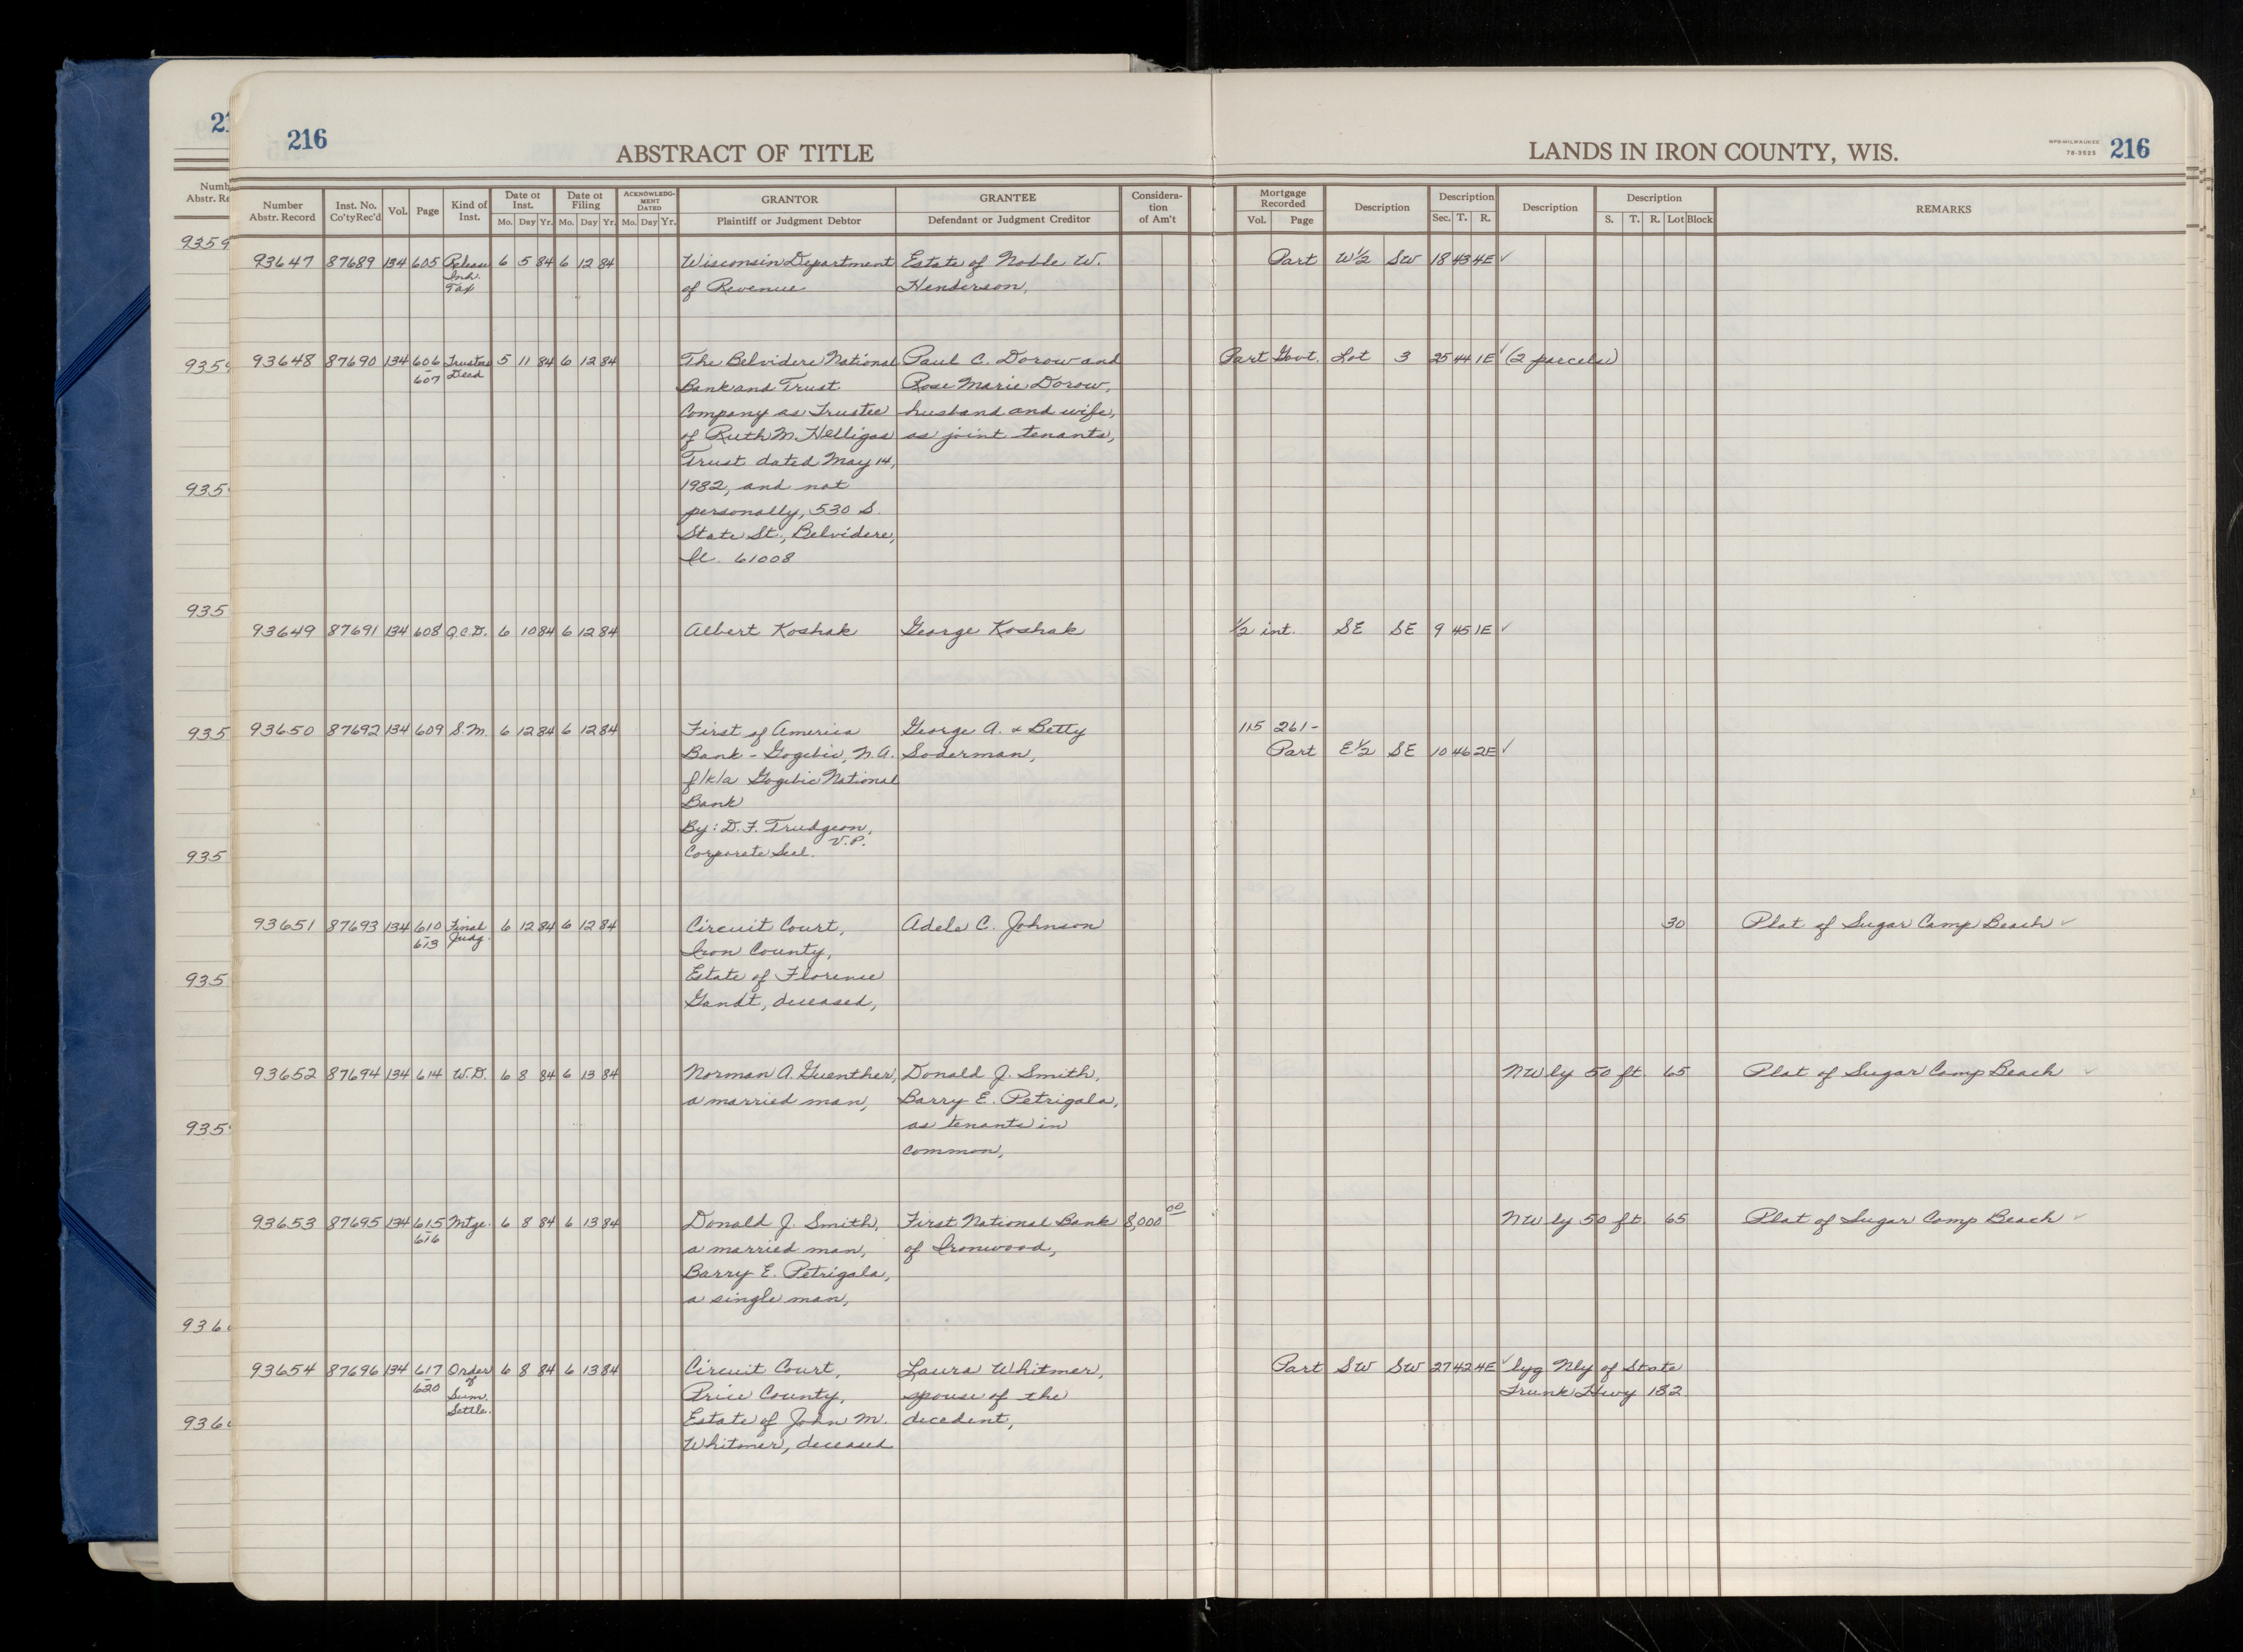 21
216
ABSTRACT OF TITLE
LANDS IN IRON COUNTY, WIS.
WPB-MILWAUKEE
78-3525
216
Numb
Abstr. Re
Number
Abstr. Record
Inst. No.
Co'ty Rec'd
Vol.
Page
Kind of
Inst.
Date of
Inst.
Mo. Day Yr.
Date of
Filing
Mo. Day Yr.
ACKNOWLEDG-
MENT
DATED
Mo. Day Yr.
GRANTOR
Plaintiff or Judgment Debtor
GRANTEE
Defendant or Judgment Creditor
Considera-
tion
of Am't
Mortgage
Recorded
Vol. Page
Description
Description
Sec. T. R.
Description
Description
S. T. R. Lot Block
REMARKS
9359
93647 87689 134 605 Release 6 5 84 6 12 84 Wisconsin Department Estate of Noble W. Part W½ SW 18 43 4E ✓
Inh. of Revenue Henderson,
Tax
9359
93648 87690 134 606 Trustees 5 11 84 6 12 84 The Belvidere National Paul C. Dorow and Part Govt. Lot 3 25 44 1E ✓ (2 parcels)
-607 Deed Bank and Trust Rose Marie Dorow,
Company as Trustee husband and wife,
of Ruth M. Helligas as joint tenants,
Trust dated May 14,
935
1982, and not
personally, 530 S.
State St., Belvidere,
Il. 61008
935
93649 87691 134 608 Q.C.D. 6 10 84 6 12 84 Albert Koshak George Koshak ½ int. SE SE 9 45 1E ✓
935
93650 87692 134 609 S.M. 6 12 84 6 12 84 First of America George A. & Betty 115 261-
Bank - Gogebic, N.A. Soderman, Part E½ SE 10 46 2E ✓
f/k/a Gogebic National
Bank
By: D. F. Trudgeon,
V.P.
935
Corporate Seal.
93651 87693 134 610 Final 6 12 84 6 12 84 Circuit Court, Adele C. Johnson 30 Plat of Sugar Camp Beach ✓
-613 Judg. Iron County,
935
Estate of Florence
Gandt, deceased,
93652 87694 134 614 W.D. 6 8 84 6 13 84 Norman A. Guenther, Donald J. Smith, NWly 50 ft. 65 Plat of Sugar Camp Beach ✓
a married man, Barry E. Petrigala,
935
as tenants in
common,
93653 87695 134 615 Mtge. 6 8 84 6 13 84 Donald J. Smith, First National Bank 8,000 00 NWly 50 ft. 65 Plat of Sugar Camp Beach ✓
-616 a married man, of Ironwood,
Barry E. Petrigala,
a single man,
936
93654 87696 134 617 Order 6 8 84 6 13 84 Circuit Court, Laura Whitmer, Part SW SW 27 42 4E ✓ lyg Nly of State
-620 of Price County, spouse of the Trunk Hwy 182
936
Sum. Estate of John M. decedent,
Settle. Whitmer, deceased